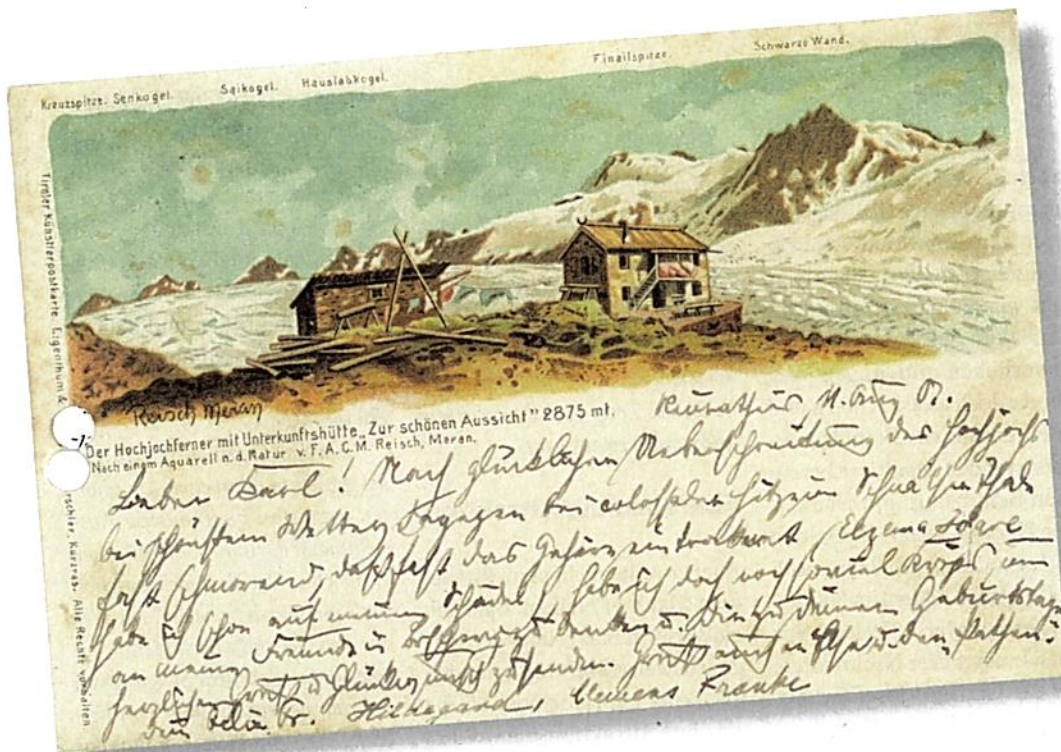 Kreuzspitze. Senkogel. Saikogel. Hauslabkogel. Finailspitze. Schwarze Wand.
Tiroler Künstlerpostkarte. Eigenthum &
rschler, Kurzras. Alle Rechte vorbehalten
Reisch Meran
Der Hochjochferner mit Unterkunftshütte „Zur schönen Aussicht" 2875 mt.
Nach einem Aquarell n. d. Natur v. F. A. C. M. Reisch, Meran.
11. Aug
Lieber Karl! Nach glücklicher Ueberschreitung des Hochjochs
bei schönstem Wetter dagegen bei colossaler Hitze im Schnalserthale
fast schmorend, daß fast das Gehirn eintrocknet
habe ich schon auf meinem Schädel habe ich doch noch soviel um
an meine Freunde zu denken u. Dir zu deinem Geburtstage
herzlichen Gruß u. Glückwunsch zu senden. Gruß auch an u. den Pathen.
Dein Hildegard, Clemens Franke